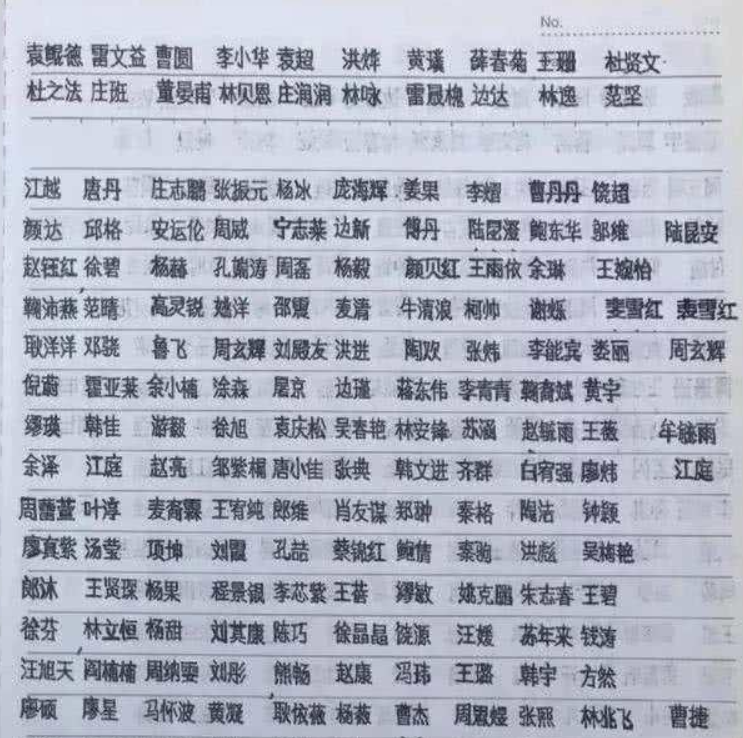 No.
袁鲲德 雷文益 曹圆 李小华 袁超 洪烨 黄瑱 薛春菊 王珊 杜贤文
杜之法 庄班 董晏甫 林贝恩 庄润润 林咏 雷晟槐 边达 林逸 范坚
江越 唐丹 庄志鹏 张振元 杨冰 庞海辉 姜果 李熠 曹丹丹 饶超
颜达 邱格 安运伦 周威 宁志莱 边新 傅丹 陆昆滢 鲍东华 邬维 陆昆安
赵钰红 徐碧 杨赫 孔蔺涛 周磊 杨毅 颜贝红 王雨依 余琳 王婉怡
鞠沛燕 范晴 高灵锐 姚洋 邵震 麦清 牛清浪 柯帅 谢烁 娄雪红 裴雪红
耿洋洋 邓骁 鲁飞 周玄辉 刘殿友 洪进 陶政 张炜 李能宾 娄丽 周玄辉
倪蔚 霍亚莱 余小楠 涂森 屈京 边瑾 蒋东伟 李青青 鞠裔斌 黄宇
缪瑛 韩佳 游毅 徐旭 袁庆松 吴春艳 林安锋 苏涵 赵毓雨 王薇 牟毓雨
余泽 江庭 赵亮 邹紫楣 唐小佳 张典 韩文进 齐群 白宥强 廖炜 江庭
周蕾萱 叶淳 麦裔霖 王宥纯 郎维 肖友谋 郑翀 秦格 陶洁 钟颖
廖真紫 汤莹 项坤 刘霞 孔喆 蔡锦红 鲍倩 秦驰 洪彪 吴梅艳
郎沐 王贤琛 杨果 程景银 李芯紫 王蓓 缪敏 姚克鹏 朱志春 王碧
徐芬 林立恒 杨甜 刘其康 陈巧 徐晶晶 饶源 汪媛 苏年来 钱涛
汪旭天 阎楠楠 周纳雯 刘彤 熊畅 赵康 冯玮 王璐 韩宇 方然
廖硕 廖星 马怀波 黄凝 耿依薇 杨薇 曹杰 周嘉煜 张熙 林兆飞 曹捷